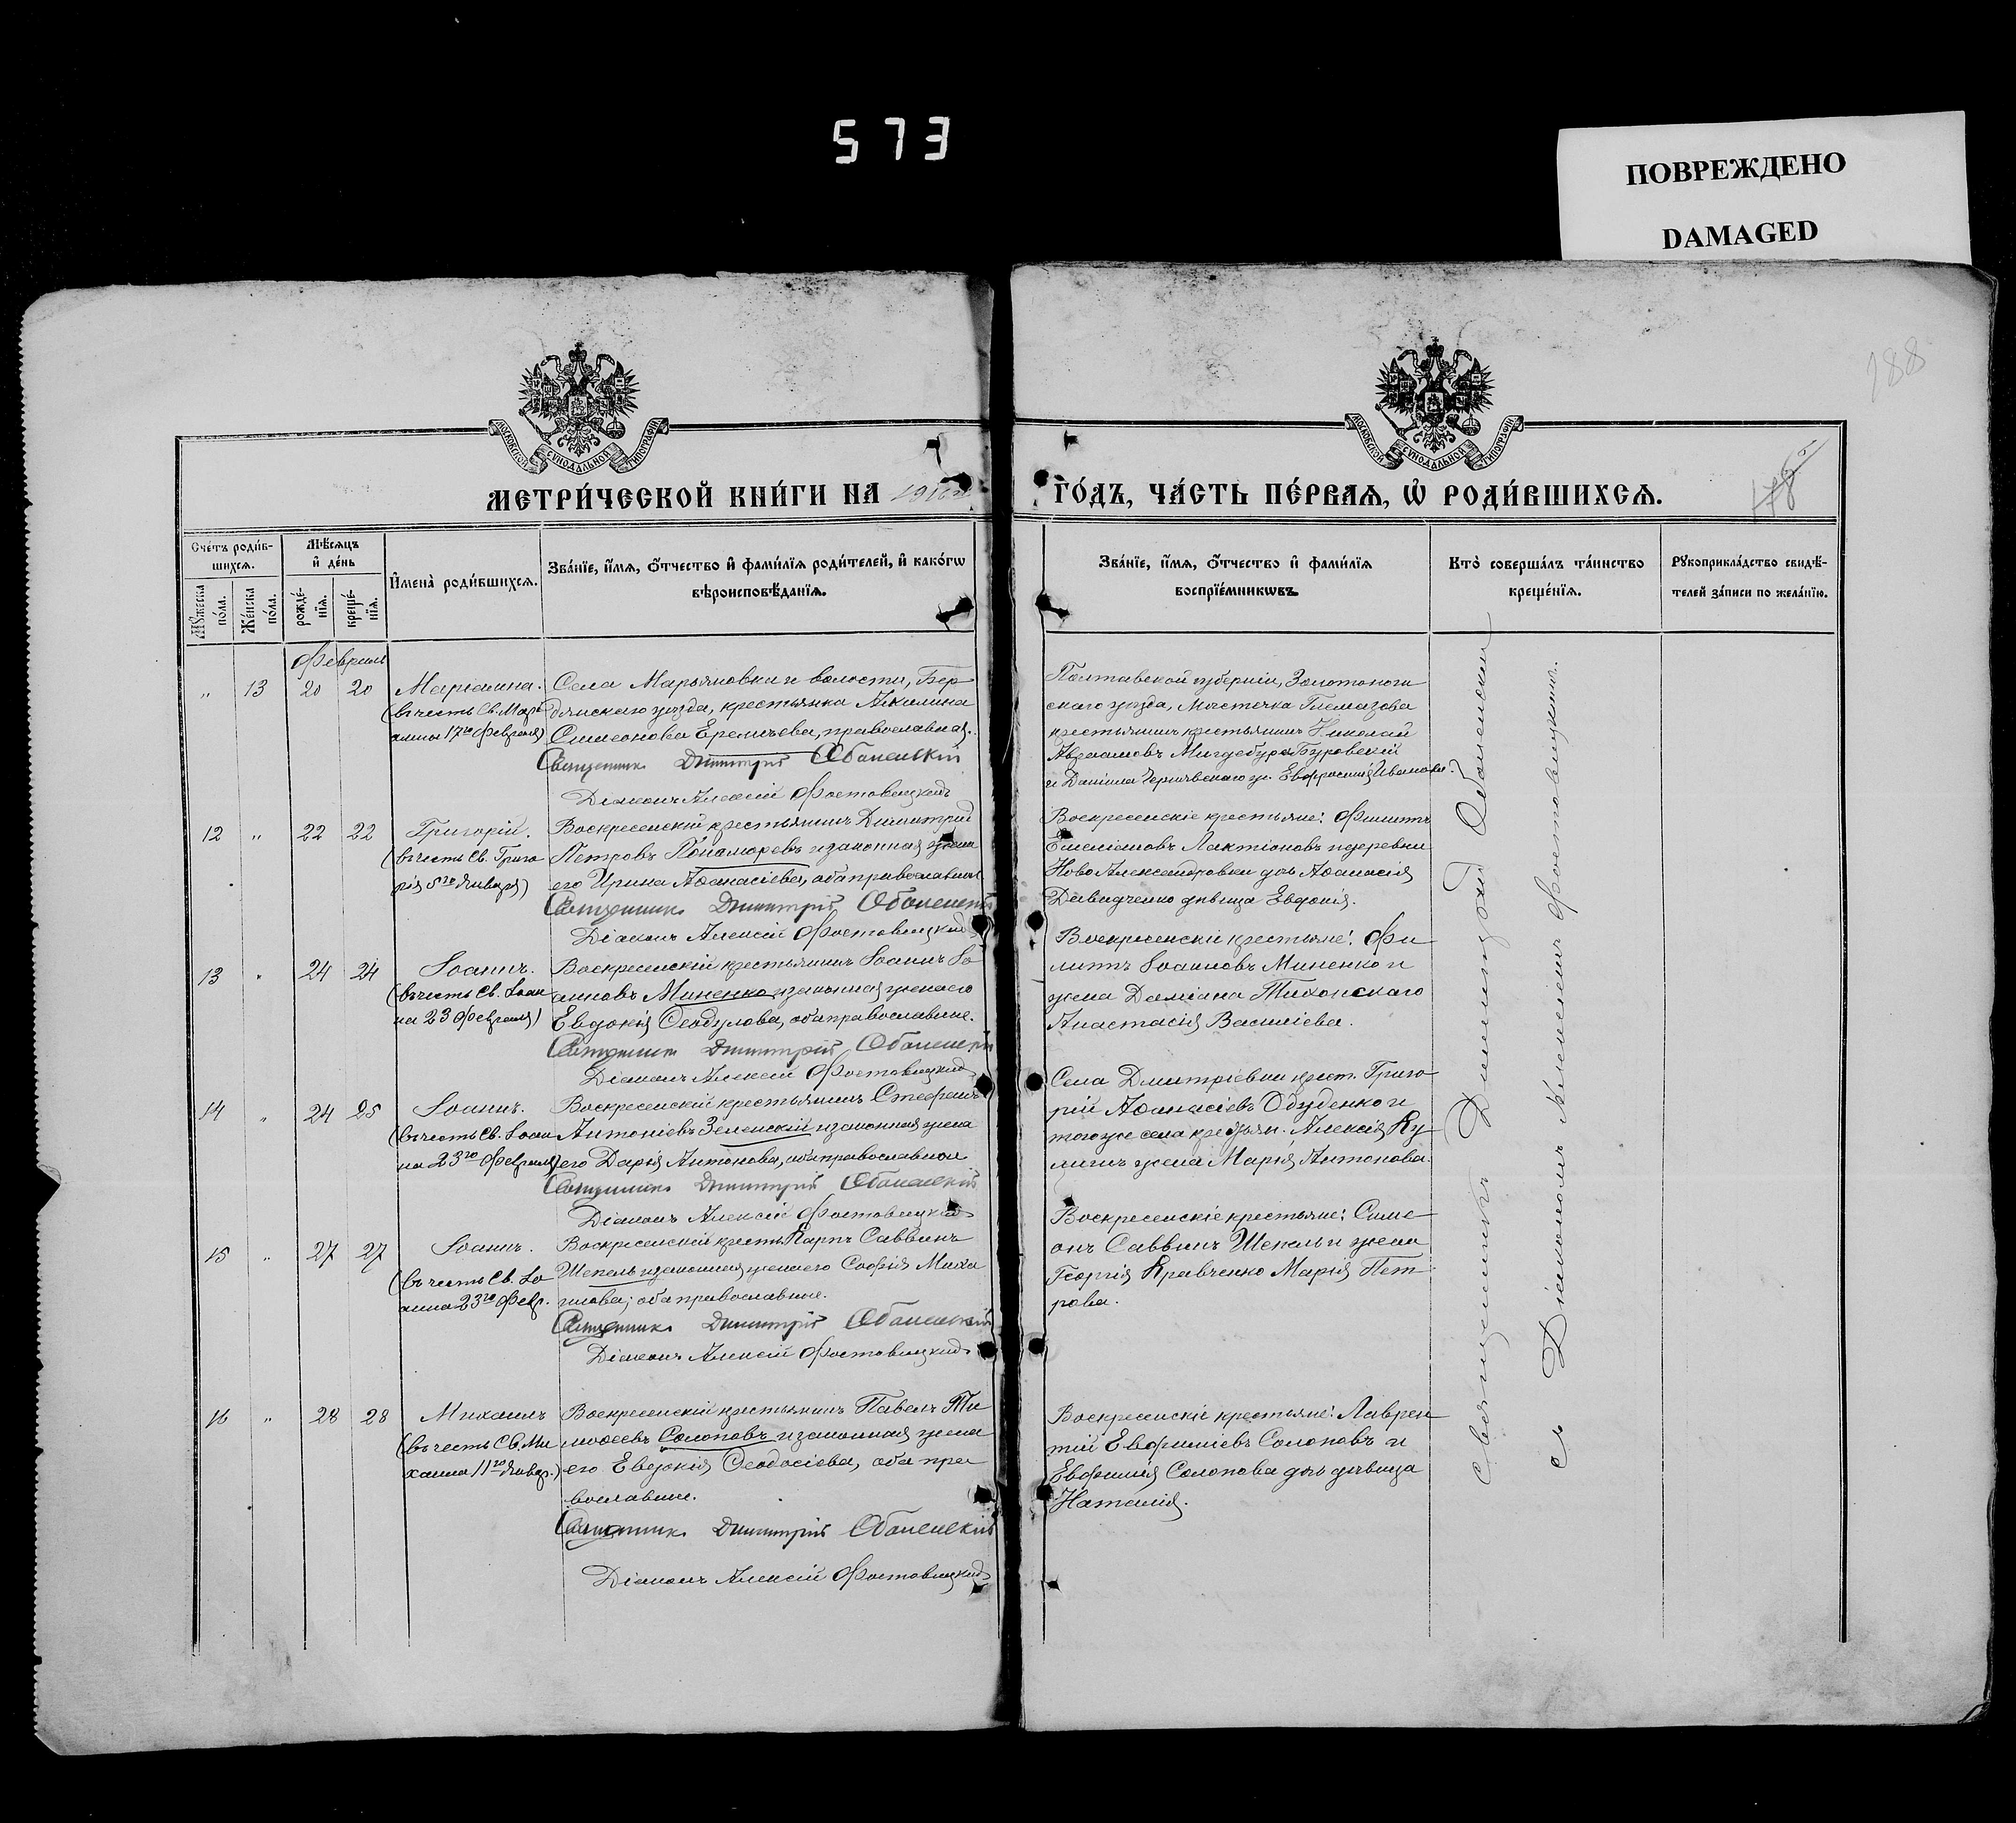 573
ПОВРЕЖДЕНО
DAMAGED
188
МОСКОВСКОЙ СѴНОДАЛЬНОЙ ТИПОГРАФІИ
МОСКОВСКОЙ СѴНОДАЛЬНОЙ ТИПОГРАФІИ
МЕТРИ́ЧЕСКОЙ КНИ́ГИ НА
ГО́ДЪ, ЧА́СТЬ ПЕ́РВАѦ, Ѡ҆ РОДИ́ВШИХСѦ.
Сче́тъ роди́в-
шихсѧ.
Мѹ́жеска по́ла.
Же́нска по́ла.
Мѣ́сѧцъ и҆ де́нь
рожде́-нїѧ.
креще́-нїѧ.
И҆мена̀ роди́вшихсѧ.
Зва́нїе, и҆́мѧ, ѻ҆́тчество и҆ фами́лїѧ роди́телей, и҆ како́гѡ
вѣроисповѣ́данїѧ.
Зва́нїе, и҆́мѧ, ѻ҆́тчество и҆ фами́лїѧ
воспрїе́мникѡвъ.
Кто̀ соверша́лъ та́инство
креще́нїѧ.
Рѹкоприкла́дство свидѣ́-
телей за́писи по жела́нїю.
Февраль
„ 13 20 20 Маріамна.
(въ честь Св. Марі
амны 17го Февраля)
Села Марьяновки и волости, Бер
дянскаго уѣзда, крестьянка Акилина
Симеонова Еремичева, православная.
Священник Димитрій Оболенскій
Діаконъ Алексій Фостовицкий
Полтавской губерніи, Золотоно
скаго уѣзда, Мѣстечка Гельмязова
крестьянинъ Николай
и Даніила ж. Евфросинія Иванова.
12 „ 22 22 Григорій.
(въ честь Св. Григо
рія 5го Января)
Воскресенскій крестьянинъ Димитрій
Петровъ Пономаревъ и законная жена
его Ирина Аѳанасіева, оба православные
Священник Димитрій Оболенскій
Діаконъ Алексій Фостовицкий
Воскресенскіе крестьяне: Филиппъ
Емеліановъ Лактіоновъ и деревни
Ново Александровки дочь Аѳанасія
Давидченко дѣвица Евдокія.
13 „ 24 24 Іоаннъ.
(въ честь Св. Іоан
на 23 Февраля)
Воскресенскій крестьянинъ Іоаннъ Іо
анновъ Миненко и законная жена его
Евдокія Ѳеодулова, оба православные.
Священник Димитрій Оболенскій
Діаконъ Алексій Фостовицкий
Воскресенскіе крестьяне: Фи
липпъ Іоанновъ Миненко и
жена Даміана Тихонскаго
Анастасія Василіева.
14 „ 24 25 Іоаннъ.
(въ честь Св. Іоан
на 23го Февраля)
Воскресенскій крестьянинъ Стефанъ
Антоніевъ Зеленскій и законная жена
его Дарія Антонова, оба православные
Священник Димитрій Оболенскій
Діаконъ Алексій Фостовицкий
Села Дмитріевки крест. Григо
рій Аѳанасіевъ Обуденко и
того же села крестьян. Алексія Ку
жена Марія Антонова.
15 „ 27 27 Іоаннъ.
(въ честь Св. Іо
анна 23го Февр.
Воскресенскій крестьян. Карпъ Саввинъ
Шепель и законная жена его Софія Миха
илова; оба православные.
Священник Димитрій Оболенскій
Діаконъ Алексій Фостовицкий
Воскресенскіе крестьяне: Симе
онъ Саввинъ Шепель и жена
Георгія Кравченко Марія Пет
рова.
16 „ 28 28 Михаилъ
(въ честь Св. Ми
хаила 11го Январ.)
Воскресенскій крестьянинъ Павелъ Ти
моѳеевъ Солоповъ и законная жена
его Евдокія Ѳеодосіева, оба пра
вославные.
Священник Димитрій Оболенскій
Діаконъ Алексій Фостовицкий
Воскресенскіе крестьяне: Лаврен
тій Евфиміевъ Солоповъ и
Евфимія Солопова дочь дѣвица
Наталія.
Священникъ Димитрій Оболенскій
съ Діакономъ Алексіемъ Фостовицкимъ.